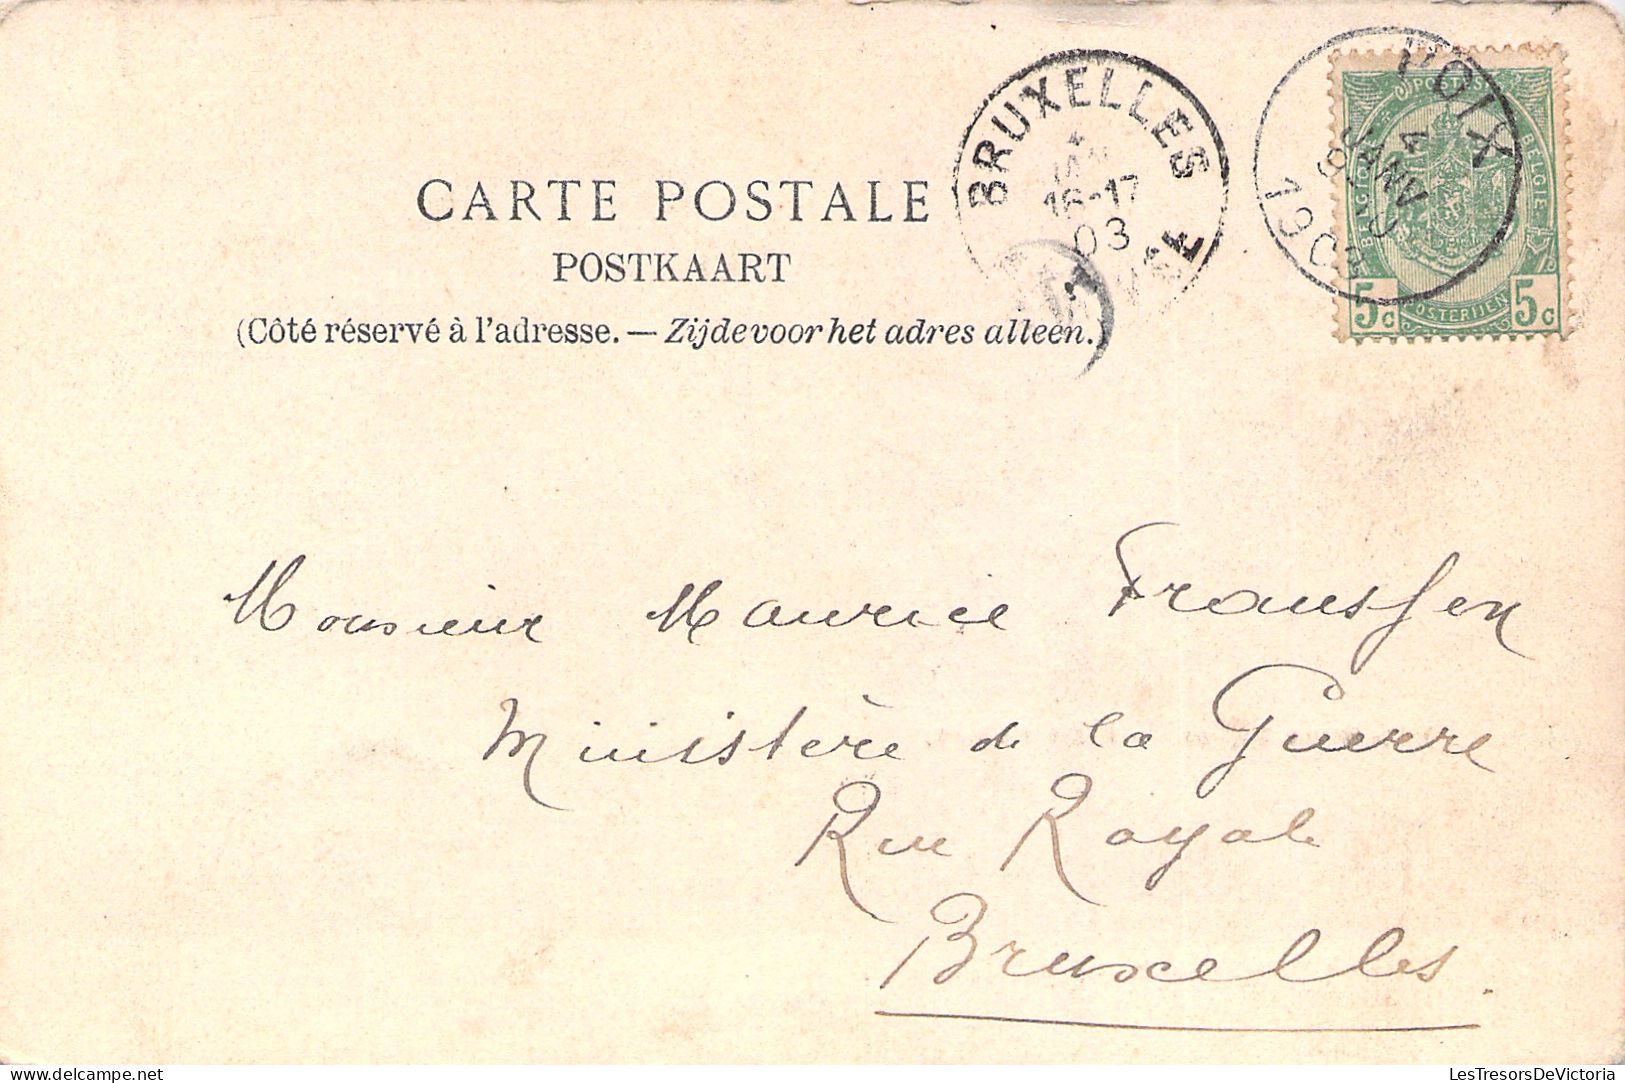 CARTE POSTALE
POSTKAART
(Côté réservé à l'adresse. — Zijde voor het adres alleen.)
BRUXELLES
16-17
03
POIX
4
JANV
1903
POSTES
BELGIQUE
BELGIE
POSTERIJEN
5c
5c
Monsieur Maurice Franssen
Ministère de la Guerre
Rue Royale
Bruxelles.
LesTresorsDeVictoria
delcampe.net